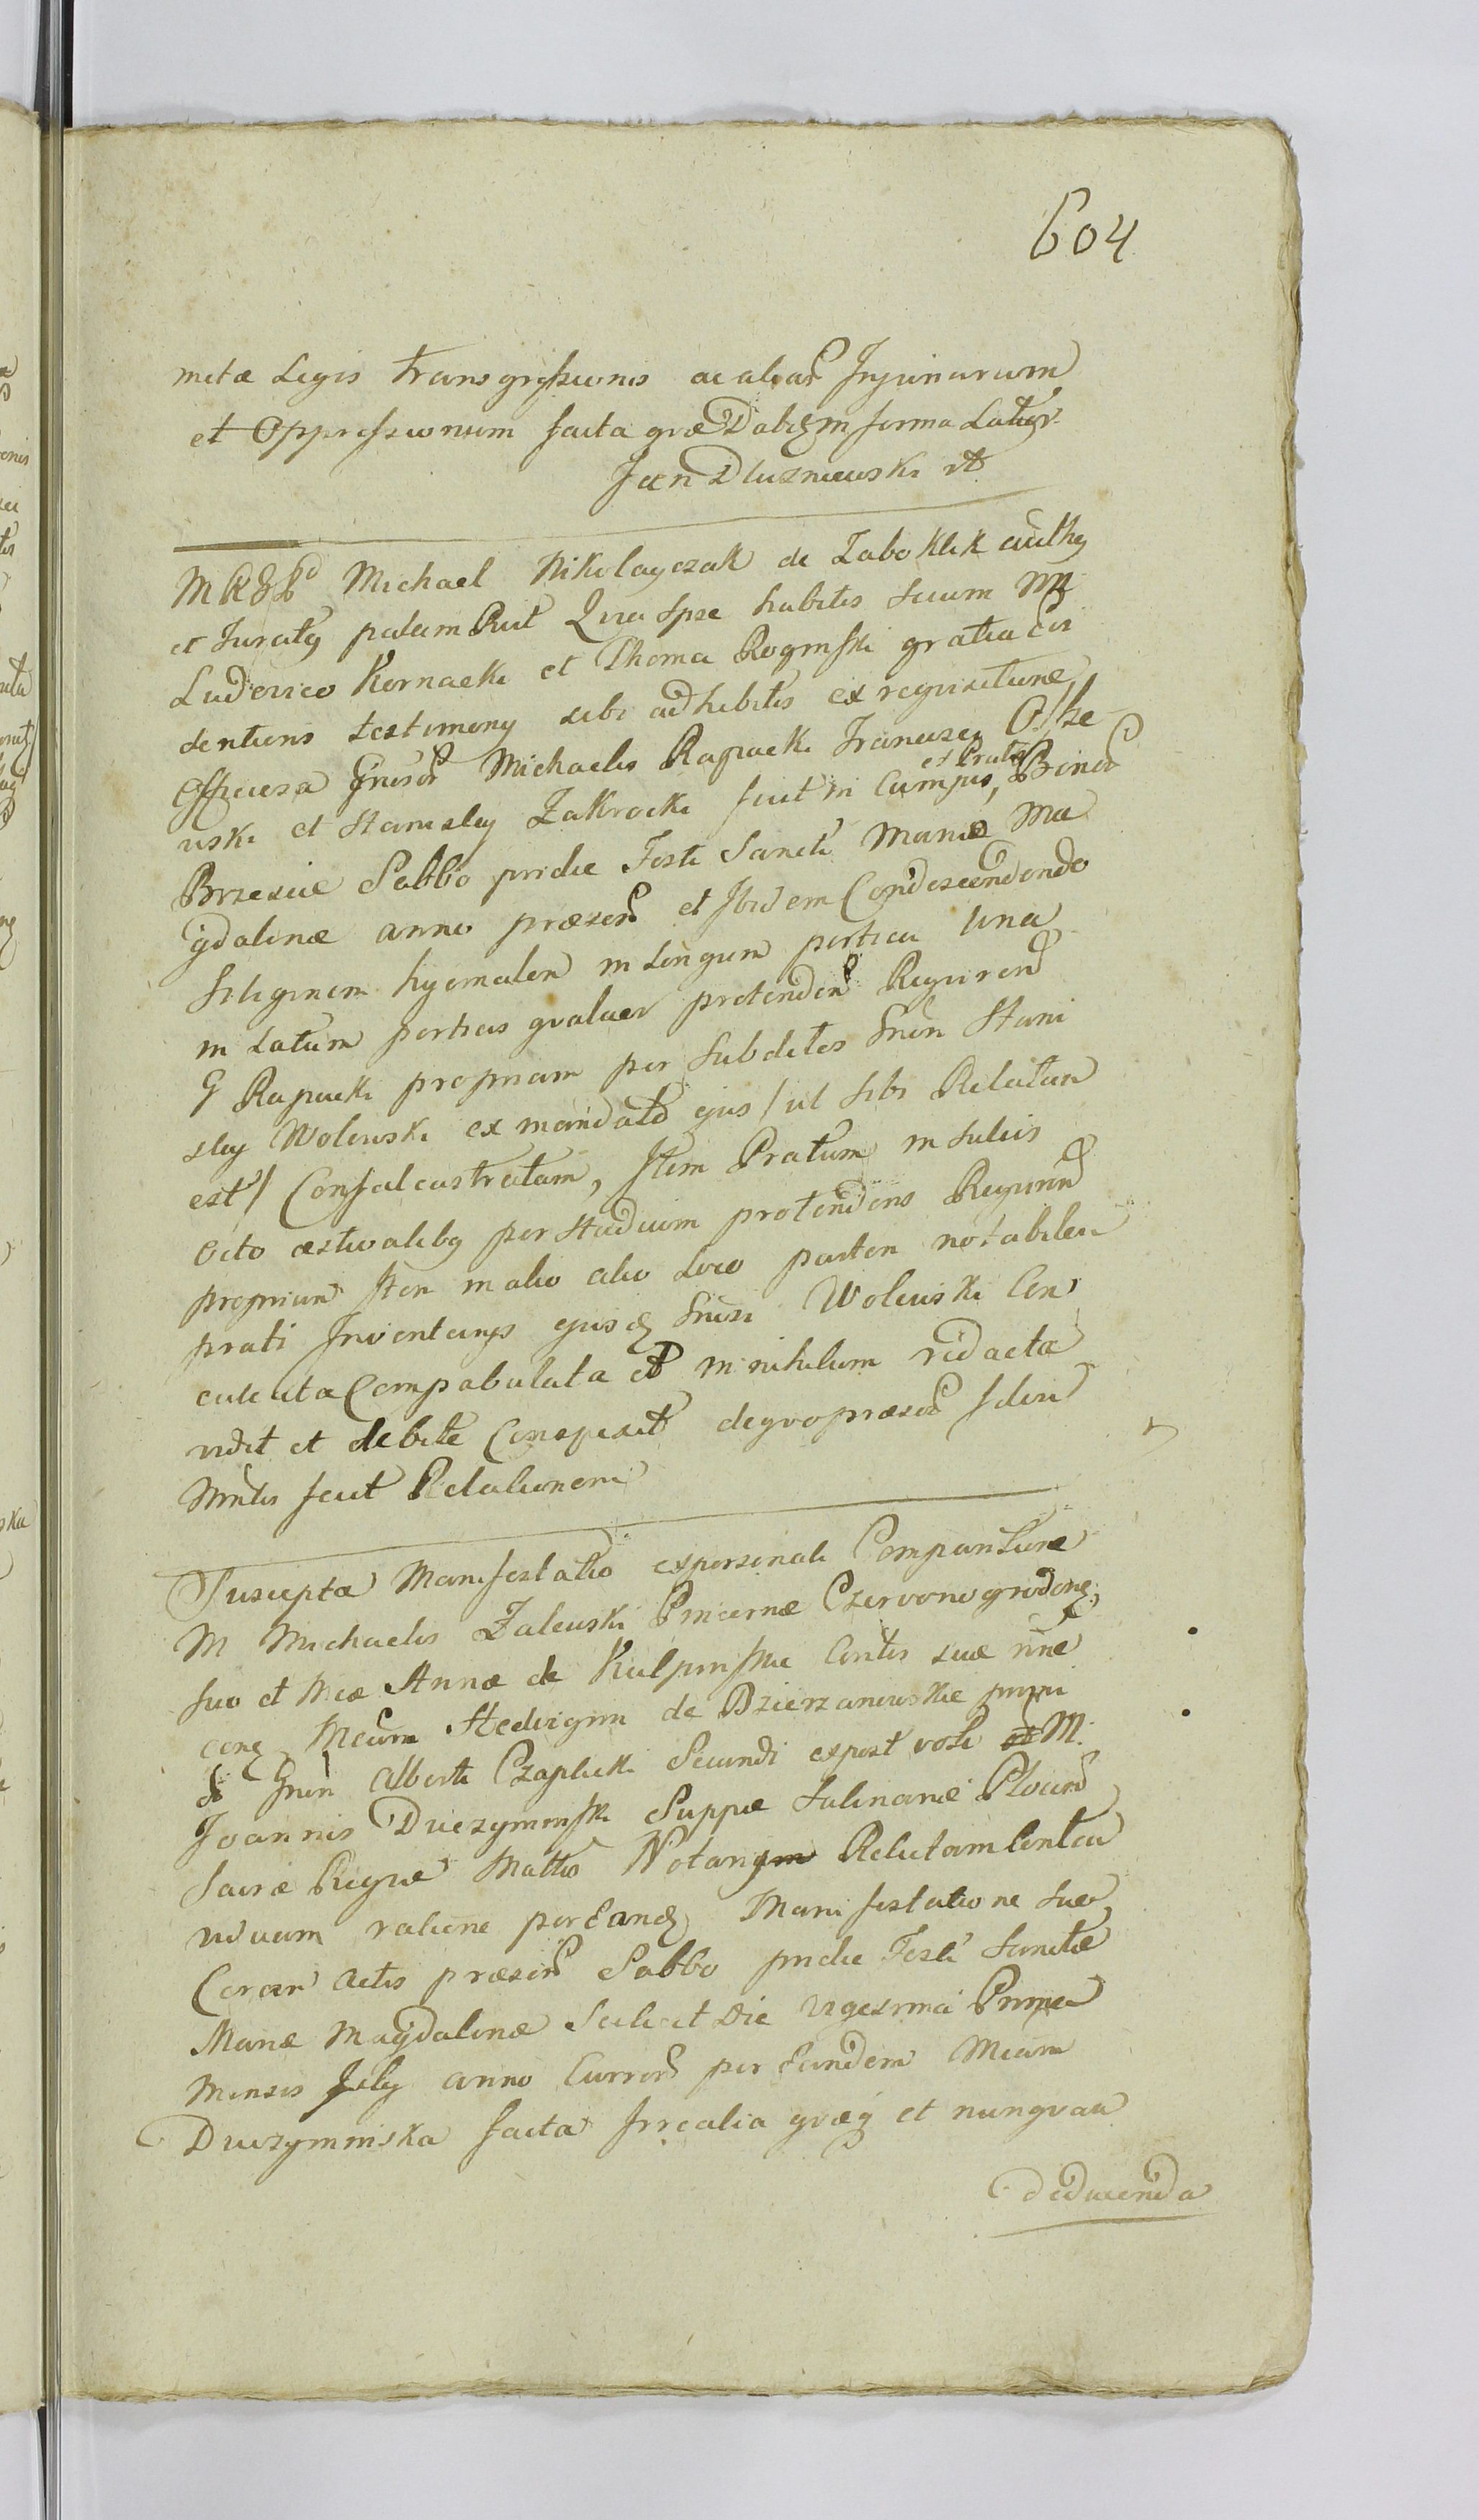 604
metæ Legis transgressionis ac aliar Injuriarum
et Oppressionum facta quæ Dabitz in forma Latiori
Jan Dluzniewski
Michael Nikolayczak de Zaboklik authen
et Juratg palam Rcit Quia Ipse habitis secum NN
Ludovico Kornacki et Thoma Roginski gratia evi
dentioris testimony sibi adhibitis ex requisitione
Officiosa Gnosor Michaelis Rapacki Francisci Osse
wski et Stanislay Zakrocki fuit in Campis, et Pratis Bonor
Brzescie Sabbo pridie Festi Sanctæ Mariæ Ma
gdalenæ anno præsen et Ibidem Condescendendo
Siliginem hyemalem in longum pertica una
in Latum perticas qualuor protenden Requiren
G Rapacki propriam per subditos Gnosi Stani
slay Wolewski ex mandato ejus / ut sibi Relatum
est / Confalcastratam, Item Pratum in sulcis
Octo æstivalibg per Stadium protendens Requiren
proprium Item in alio alio Loco partem notabilem
prati Inventarys ejusd Gnosi Wolewski Con
culcata Compabulata et in nihilum redacta
vidit et debite Conspexit de quo præsen fidem
Mntis fecit Relationem
Suscepta Manifestatio ex personali Comparitione
M Michaelis Zalewski Pincernæ Czervonogroden,
suo et Mcæ Annæ de Kulpinskie Contis suæ nne
cong Mcam Hedvigim de Bzierzanowskie primi
Gnosi Alberti Czaplicki Secundi expost voti M.
Joannis Duczyminski Suppæ Salinariæ Plocen
Sacræ Regiæ Mattis Notary Relictam Contra
viduam ratione per Eand Manifestatione suæ
Coram Actis præsen Sabbo pridie Festi Sanctæ
Mariæ Magdalenæ Scilicet Die vigesima Prima
Mensis July anno Curren per Eandem Mcam
Duczyminska facta Irrealia quæg et nunquam
deducenda